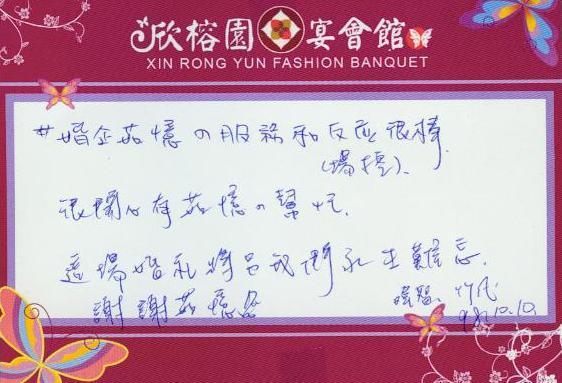 欣榕園 宴會館
XIN RONG YUN FASHION BANQUET
#婚企茹憶の服務和反應很棒
(場控)、
很開心有茹憶の幫忙.
這場婚礼將是我們永生難忘.
謝謝茹憶
98.10.10.